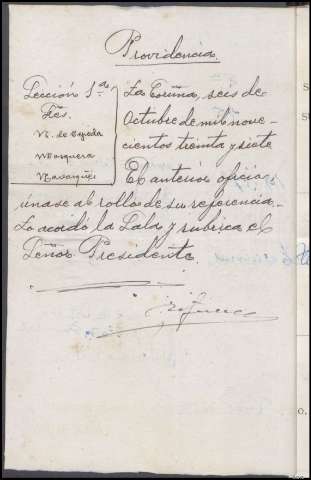 Providencia
Sección 1ª
Sres.
N. de Cepeda
Mosquera
La Coruña, seis de
Octubre de mil nove-
cientos treinta y siete
El anterior oficio
únase al rollo de su referencia.
Lo acordó la Sala y rubrica el
Señor Presidente.